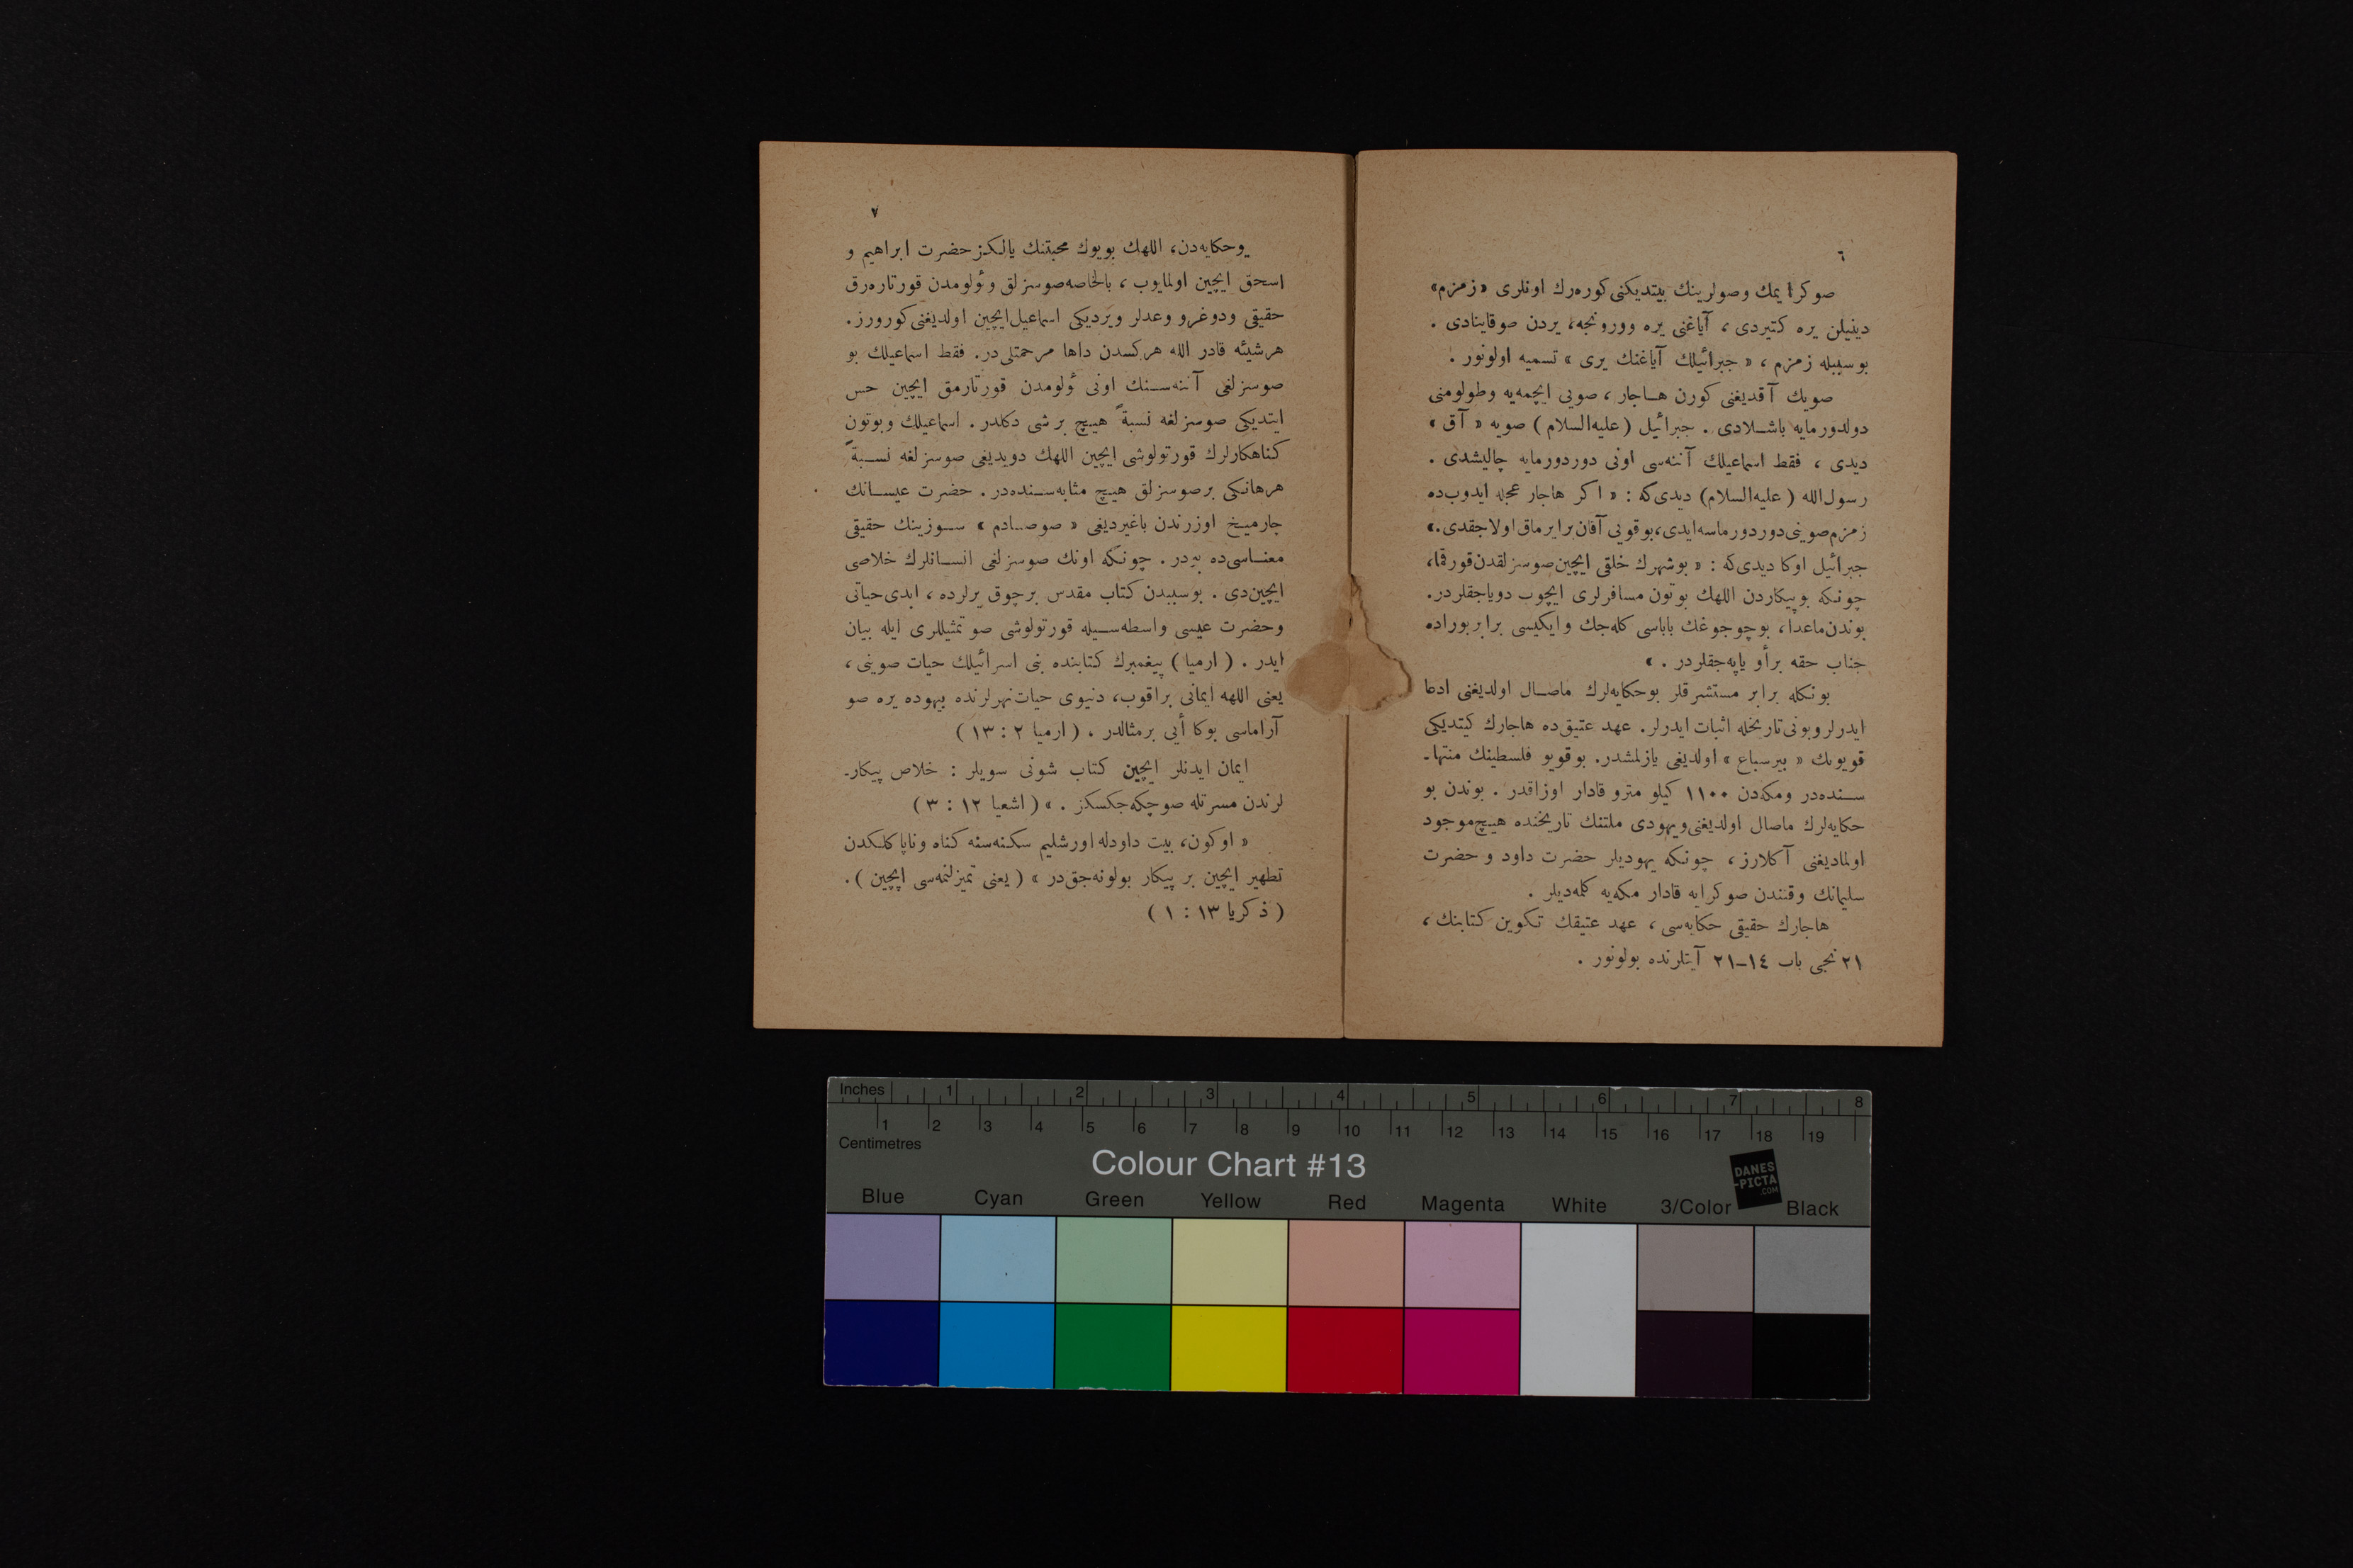 ٦
صوكرا يمك وصولرينك بيتديكنى كوره‌رك اونلرى «زمزم»
دينيلن يره كتيردى ، آياغنى يره وورونجه، يردن صوقاينادى .
بوسببله زمزم ، « جبرائيلك آياغنك يرى » تسميه اولونور .
صويك آقديغنى كورن هاجار ، صويى ايچمه‌يه وطولومنى
دولدورمايه باشلادى . جبرائيل (عليه‌السلام) صويه « آق »
ديدى ، فقط اسماعيلك آننه‌سى اونى دوردورمايه چاليشدى .
رسول‌الله (عليه‌السلام) ديدى‌كه : « اكر هاجار عجله ايدوب‌ده
زمزم‌صوينى‌دوردورماسه‌ايدى،بوقويى آقان‌برايرماق‌اولاجقدى.»
جبرائيل اوكا ديدى‌كه : « بوشهرك خلقى ايچين‌صوسزلقدن‌قورقما،
چونكه بوپيكاردن اللهك بوتون مسافرلرى ايچوب دوياجقلردر.
بوندن‌ماعدا، بوچوجوغك باباسى كله‌جك وايكيسى برابربوراده
جناب حقه برأو ياپه‌جقلردر . »
بونكله برابر مستشرقلر بوحكايه‌لرك ماصال اولديغنى ادعا
ايدرلروبونى‌تاريخله اثبات ايدرلر. عهد عتيق‌ده هاجارك كيتديكى
قويونك « بيرسباع » اولديغى يازلمشدر. بوقويو فلسطينك منتها-
سنده‌در ومكه‌دن ١١٠٠ كيلو مترو قادار اوزاقدر . بوندن بو
حكايه‌لرك ماصال اولديغنى‌ويهودى ملتنك تاريخنده هيچ‌موجود
اولماديغنى آكلارز ، چونكه يهوديلر حضرت داود و حضرت
سليمانك وقتندن صوكرايه قادار مكه‌يه كلمه‌ديلر .
هاجارك حقيقى حكايه‌سى ، عهد عتيقك تكوين كتابنك ،
٢١نجى باب ١٤-٢١ آيتلرنده بولونور .
٧
وحكايه‌دن، اللهك بويوك محبتنك يالكزحضرت ابراهيم و
اسحق ايچين اولمايوب ، بالخاصه‌صوسزلق وئولومدن قورتاره‌رق
حقيقى ودوغرو وعدلر ويرديكى اسماعيل‌ايچين اولديغنى‌كورورز.
هرشيئه قادر الله هركسدن داها مرحمتلى‌در. فقط اسماعيلك بو
صوسزلغى آننه‌سنك اونى ئولومدن قورتارمق ايچين حس
ايتديكى صوسزلغه نسبةً هيچ برشى دكلدر . اسماعيلك وبوتون
كناهكارلرك قورتولوشى ايچين اللهك دويديغى صوسزلغه نسبةً
هرهانكى برصوسزلق هيچ مثابه‌سنده‌در . حضرت عيسانك
چارميخ اوزرندن باغيرديغى « صوصادم » سوزينك حقيقى
معناسى‌ده بودر . چونكه اونك صوسزلغى انسانلرك خلاصى
ايچين‌دى . بوسببدن كتاب مقدس برچوق يرلرده ، ابدى‌حياتى
وحضرت عيسى واسطه‌سيله قورتولوشى صو تمثيللرى ايله بيان
ايدر . ( ارميا ) پيغمبرك كتابنده بنى اسرائيلك حيات صوينى ،
يعنى اللهه ايمانى براقوب، دنيوى حيات‌نهرلرنده بيهوده يره صو
آراماسى بوكا أيى برمثالدر . ( ارميا ٢ : ١٣ )
ايمان ايدنلر ايچين كتاب شونى سويلر : خلاص پيكار-
لرندن مسرتله صوچكه‌جكسكز . » ( اشعيا ١٢ : ٣ )
« اوكون، بيت داودله اورشليم سكنه‌سنه كناه وناپاكلكدن
تطهير ايچين بر پيكار بولونه‌جق‌در » ( يعنى تميزلنمه‌سى ايچين ).
( ذكريا ١٣ : ١ )
Inches 1 2 3 4 5 6 7 8
1 2 3 4 5 6 7 8 9 10 11 12 13 14 15 16 17 18 19
Centimetres
Colour Chart #13
DANES
-PICTA
.COM
Blue Cyan Green Yellow Red Magenta White 3/Color Black